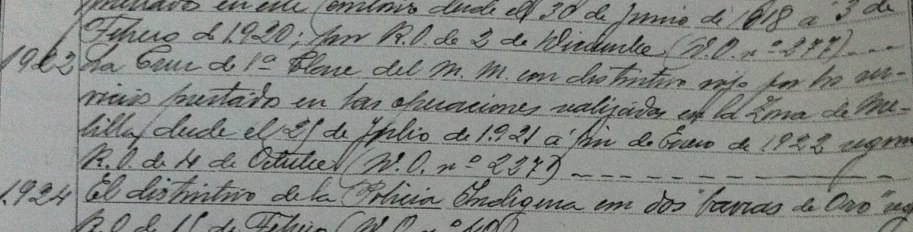 prestado en este Centro desde el 30 de Junio de 1918 a 3 de
Febrero de 1920; por R.O. de 2 de Diciembre (D.O. nº 277)
1923 La Cruz de 1ª Clase del M. M. con distintivo rojo por los ser-
vicios prestados en las operaciones realizadas en la Zona de Me-
lilla, desde el 25 de Julio de 1921 a fin de Enero de 1922 segun
R.O. de 4 de Octubre (D.O. nº 227)
1.924 El distintivo de la Policia Indigena con dos "barras de Oro" seg
R.O. de 15 de Febrero (D.O. nº 40)